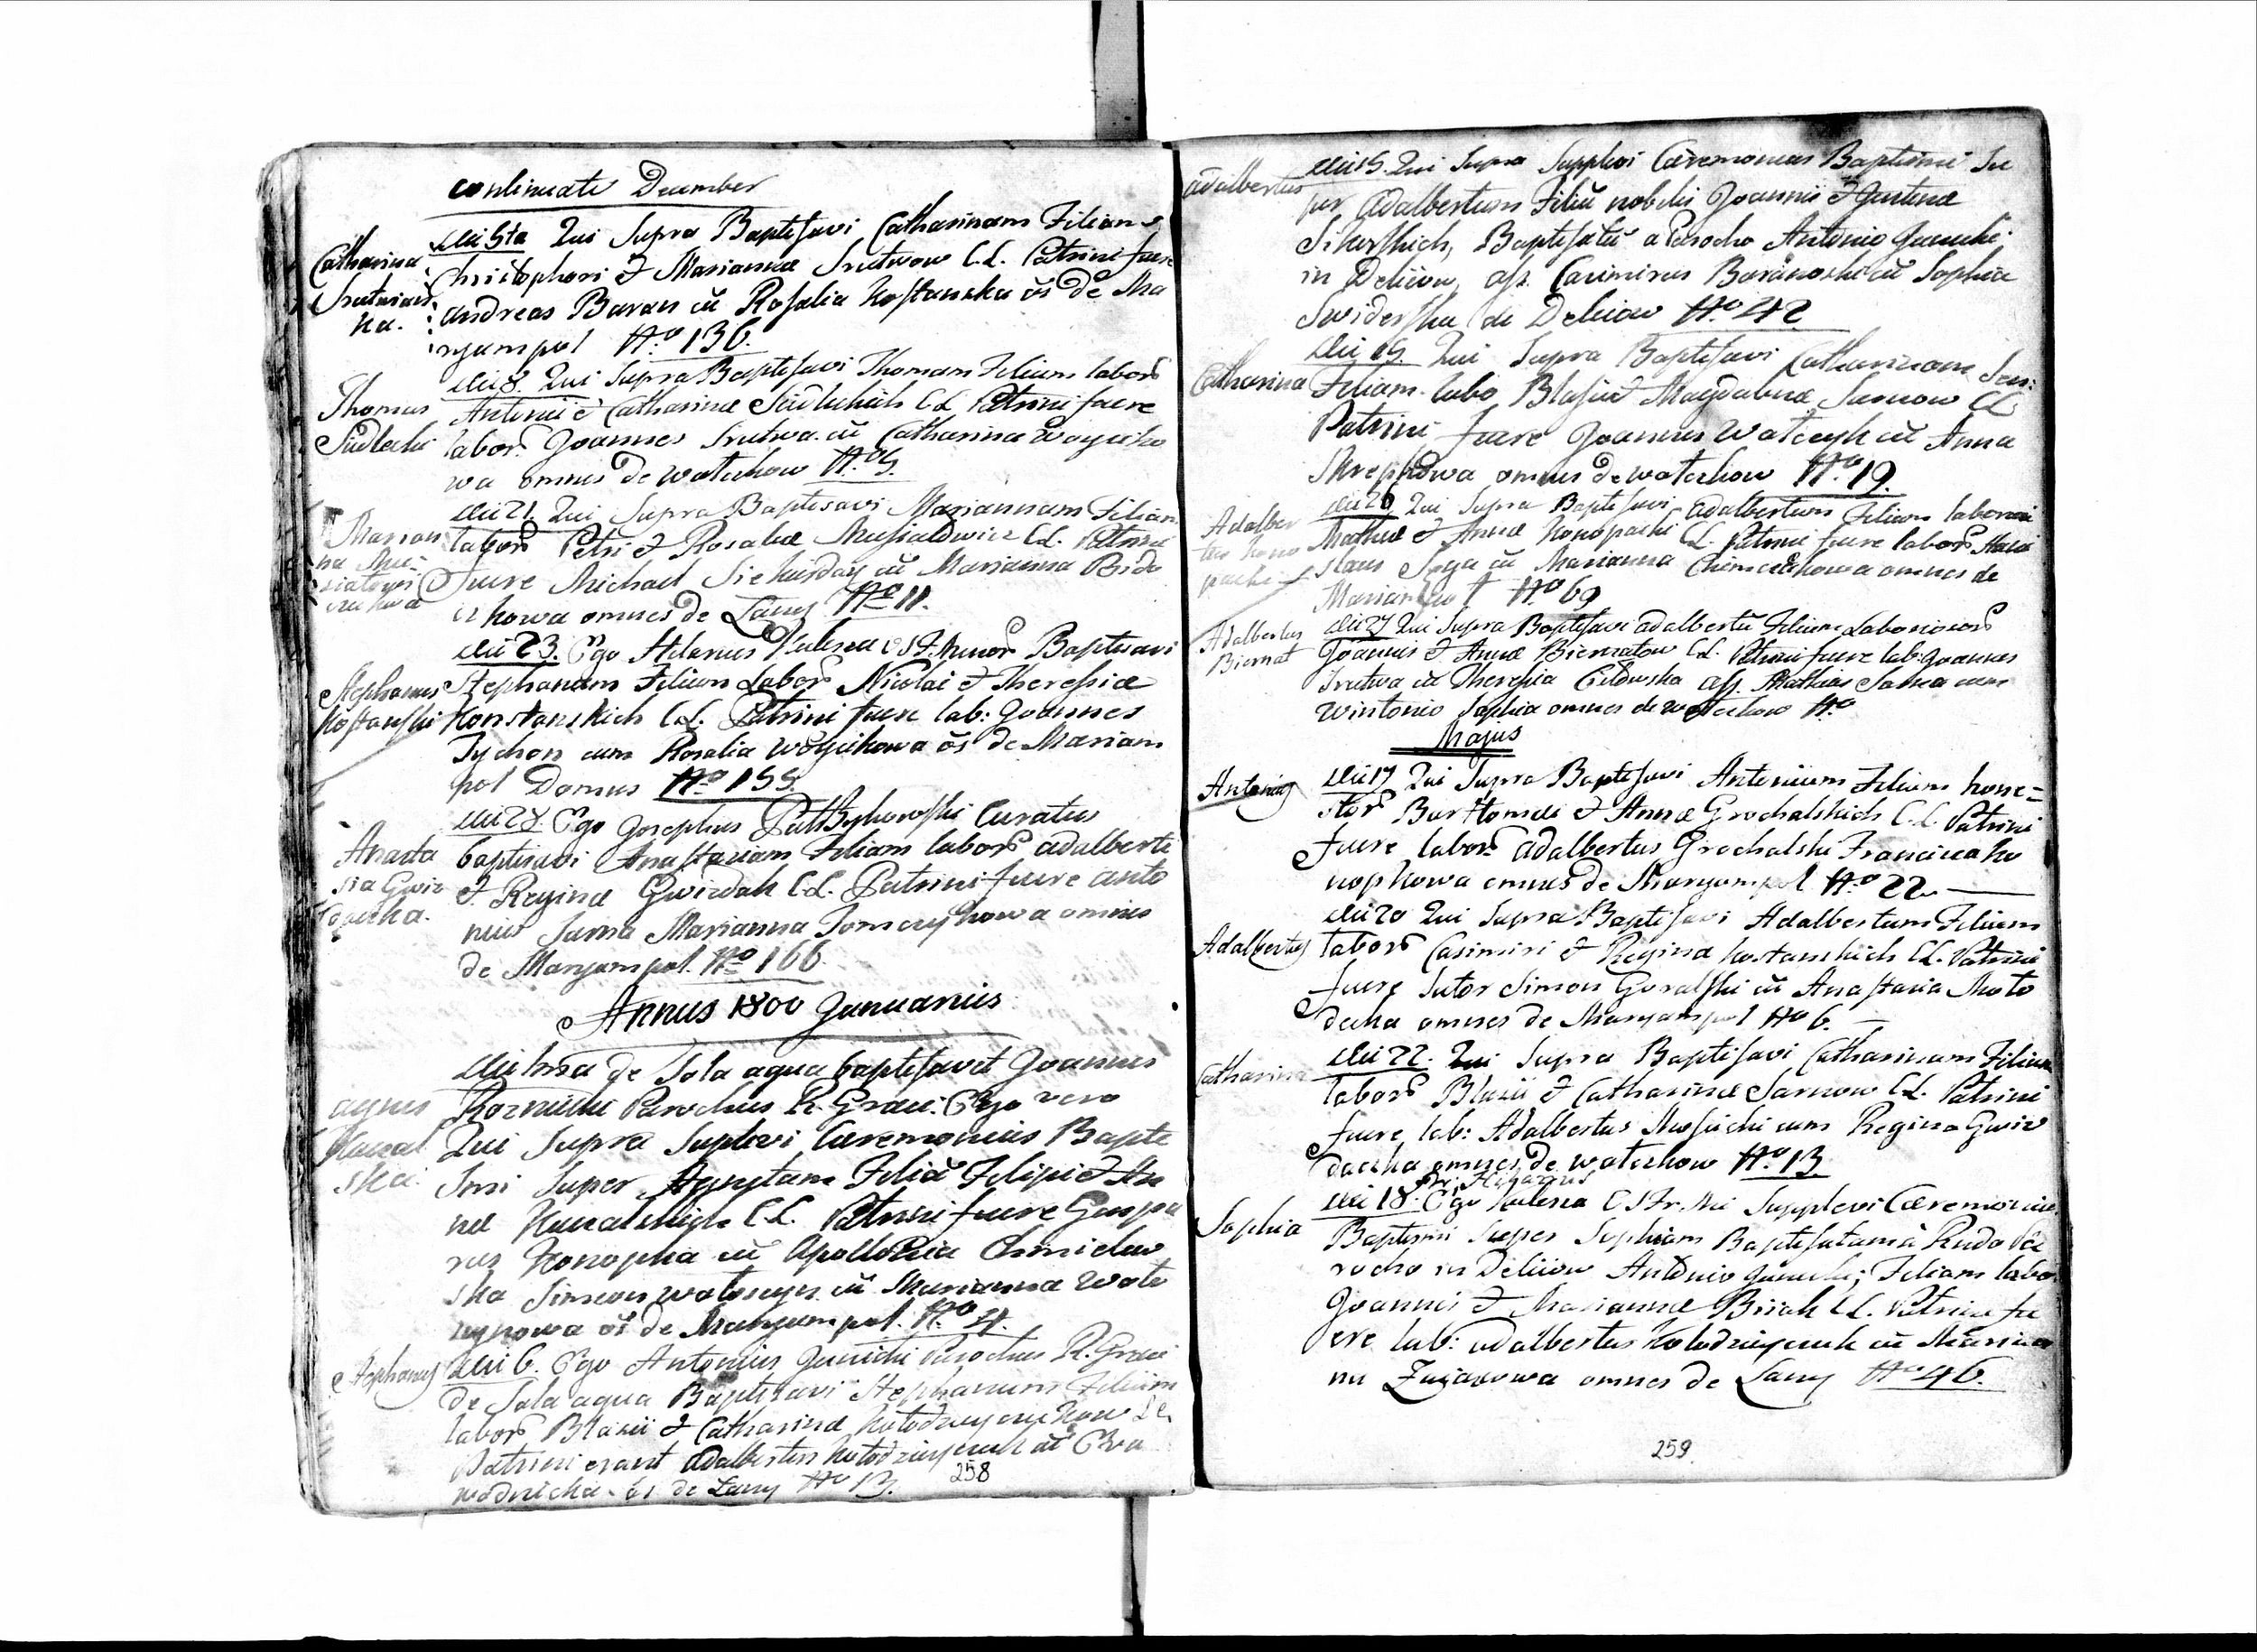 continuatio December
Catharina
Srutwian
ka.
die 5ta Qui Supra Baptisavi Catharinam Filiam
Christophori & Marianna Srutwow C.L. Patrini fuere
Andreas Baran cũ Rosalia Kostanska ōs de Ma
ryampol No 136.
Thomas
Siedlecki
die 8. Qui Supra Baptisavi Thomam Filium labor
Antonii & Catharina Siedleckich CL Patrini fuere
labor. Joannes Srutwa cũ Catharina Woyciko
wa omnes de Wotczkow No 5.
Marian
na Mu
siatowi
czukowa
die 21. Qui Supra Baptisavi Mariannam Filiam
labor Petri & Rosalia Musialowicz CL. Patrini
fuere Michael Siekierday cũ Marianna Bida
czkowa omnes de Łany No 11.
Stephanus
Kostanski
die 23. Ego Hilarius Kulesza OSF. Minor Baptisavi
Stephanum Filium Labor Nicolai & Theressia
Konstanskich C.L. Patrini fuere lab: Joannes
Tychon cum Rosalia Woycikowa ōs de Mariam
pol Domus No 155.
Anasta
sia Gwiz
daczka.
die 27. Ego Josephus Curatus
baptisavi Anastasiam Filiam labor Adalberti
& Regina Gwizdak C.L. Patrini fuere Anto
nius Sarna Marianna Tomczykowa omnes
de Maryampol No 166
Annus 1800 Januarius
Agnes
Kucal
ska
die 1ma de Sola aqua baptisavit Joannes
Kozmicki Parochus R. Graeci. Ego vero
Qui Supra Suplevi Caeremonias Bapti
smi Super Agnetam Filiã Filipi & An
na Kucalskich C.L. Patrini fuere Gaspa
rus Konopka cũ Apollonia Chmielow
ska Simeon Watasczyn cũ Marianna Wata
czynowa ōs de Maryampol. No 4.
Stephanus
die 6. Ego Antonius Janicki Parochus R. Graeci
de Sola aqua Baptisavi Stephanum Filium
labor Blasii & Catharina Kołodzieyczykow CL.
Patrini erant Adalbertus Kołodzieyczuk cũ Eva
Wodnicka ōs de Łany No 13.
258
Adalbertus
die 15. Qui Supra Supplevi Caeremonias Baptismi Su
per Adalbertum Filiũ nobilis Joannis & Justina
Sikorskich, Baptisatũ a Parocho Antonio Janicki
in Deliiow, ass. Casimirus Baranoski cũ Sophia
Swiderska de Deliiow No 42
Catharina
die 15. Qui Supra Baptisavi Catharinam Sen:
Filiam labo Blasii & Magdalena Sarnow CL
Patrini fuere Joannes Watczyk cũ Anna
Skrepkowa omnes de Wotczkow No 19.
Adalber
tus Kono
packi
die 26 Qui Supra Baptisavi Adalbertum Filium laborum
Mathia & Anna Konopacki CL. Patrini fuere labor Stani
slaus Syga cũ Marianna Chimczakowa omnes de
Mariampol No 69
Adalbertus
Biernat
die 27 Qui Supra Baptisavi Adalbertũ Filium Laboriosor
Joannis & Anna Biernatow CL. Patrini fuere lab: Joannes
Srutwa cũ Theressia Cildowska ass. Mathias Sarna cum
Wintonio Sophia omnes de Wotczkow No
Majus
Antonius
die 17 Qui Supra Baptisavi Antonium Filium hone=
stor Barttomei & Anna Grochalskich C.L. Patrini
fuere labor Adalbertus Grochalski Francisca Ko
nopkowa omnes de Maryampol No 22.
Adalbertus
die 20 Qui Supra Baptisavi Adalbertum Filium
labor Casimiri & Regina Kostanskich CL. Patrini
fuere Sutor Simon Goralski cũ Anastasia Moto
decka omnes de Maryampol No 6.
Catharina
die 22. Qui Supra Baptisavi Catharinam Filiam
labor Blasii & Catharina Sarnow CL. Patrini
fuere lab: Adalbertus Musiichi cum Regina Gwiz
daczka omnes de Wotczkow No 13
Sophia
Fr. Hilarius
die 18. Ego Kulesza OSFr. Mi Supplevi Caeremonias
Baptismi Super Sophiam Baptisatam à Rndo Pa
rocho in Deliiow Antonio Janicki; Filiam labo.
Joannis & Marianna Biiak CL. Patrini fu
ere lab: Adalbertus Kołodzieyczuk cũ Marian
na Zaiacowa omnes de Łany No 46.
259.